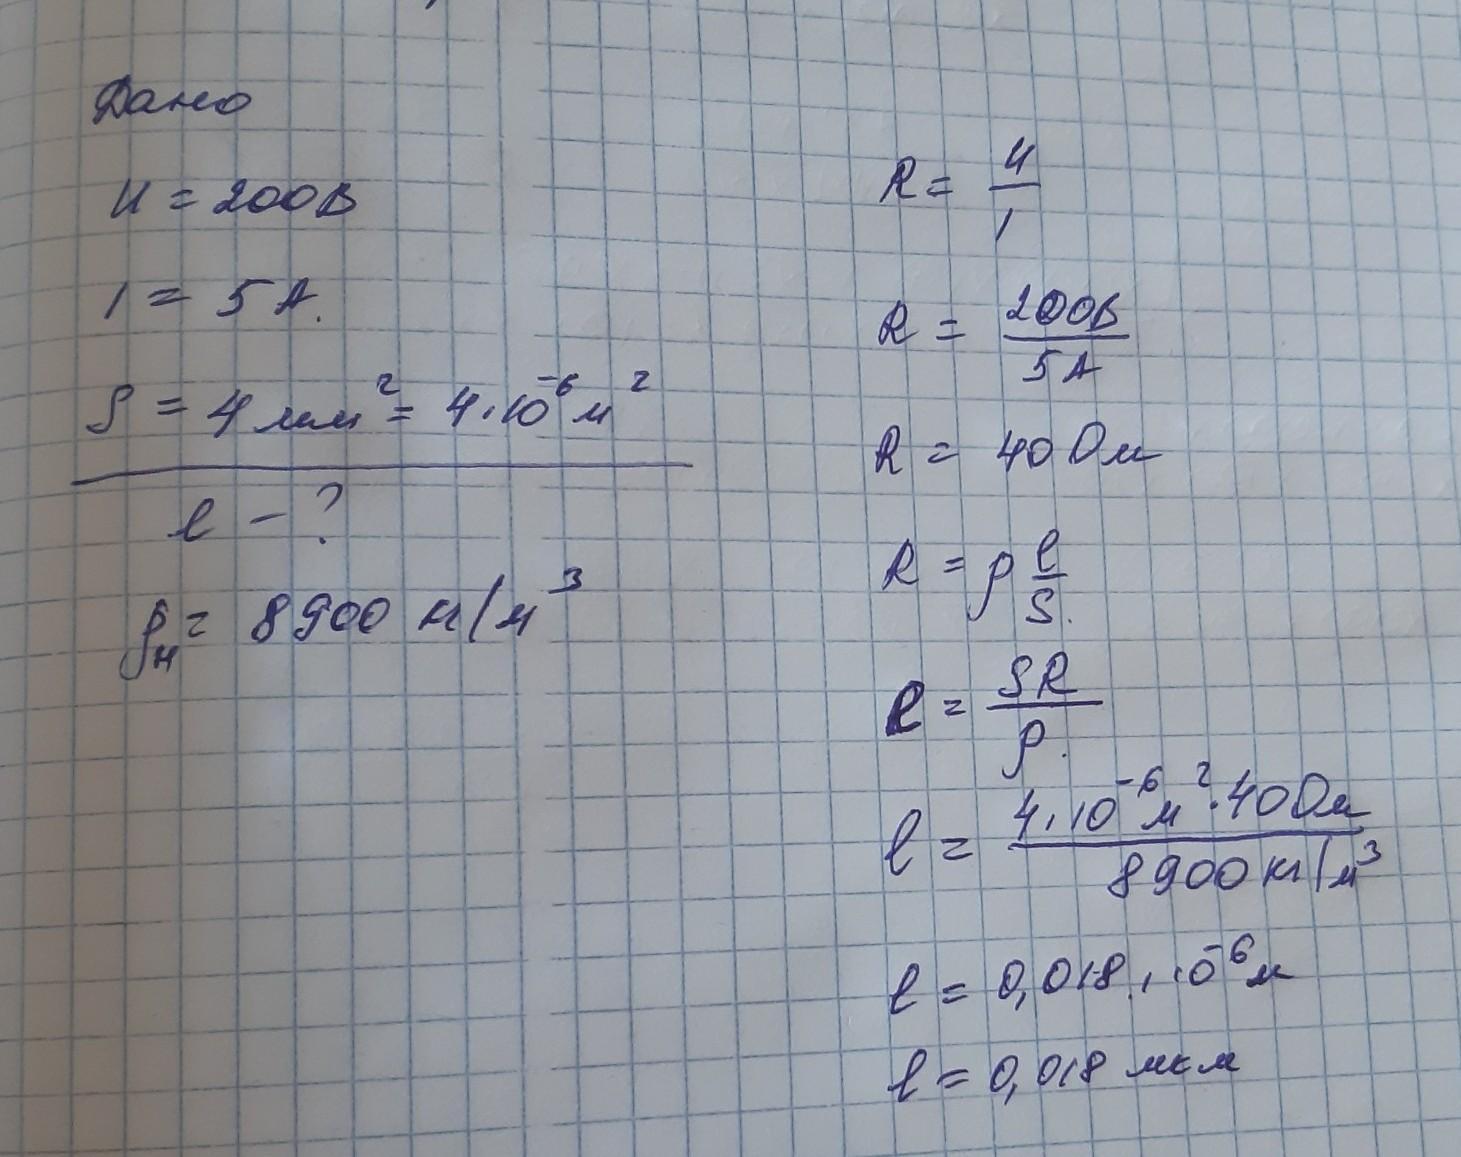 Дано
U = 200В
I = 5А.
S = 4 мм² = 4·10⁻⁶ м²
l - ?
ρн = 8900 кг/м³
R = U/I
R = 200В/5А
R = 40 Ом
R = ρ l/S.
l = SR/ρ.
l = 4·10⁻⁶ м²·40 Ом/8900 кг/м³
l = 0,018·10⁻⁶ м
l = 0,018 мкм